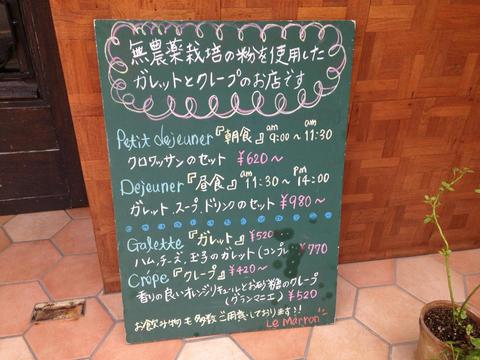 無農薬栽培の粉を使用した
ガレットとクレープのお店です
Petit dejeuner『朝食』am 9:00〜am 11:30
クロワッサンのセット ¥620〜
Dejeuner『昼食』am 11:30〜PM 14:00
ガレット、スープ、ドリンクのセット ¥980〜
Galette『ガレット』¥520
ハム、チーズ、玉子のガレット(コンプレ) ¥770
Crépe『クレープ』¥420〜
香りの良いオレンジリキュールとお砂糖のクレープ
(グランマニエ) ¥520
お飲み物も多数ご用意しております!!
Le Marron